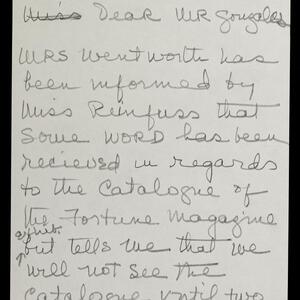 Miss Dear MR Gonzales
MRS Wentworth has
been informed by
Miss Reinfuss that
Some WORD has been
recieved in regards
to the Catalogue of
the Fortune Magazine
exhib.
but tells me that we
will not see the
Catalogue until two